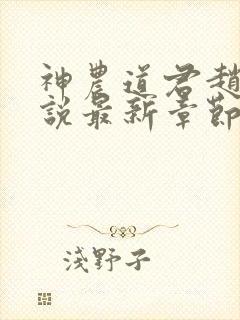 神農道君趙
說最新章節
淺野子